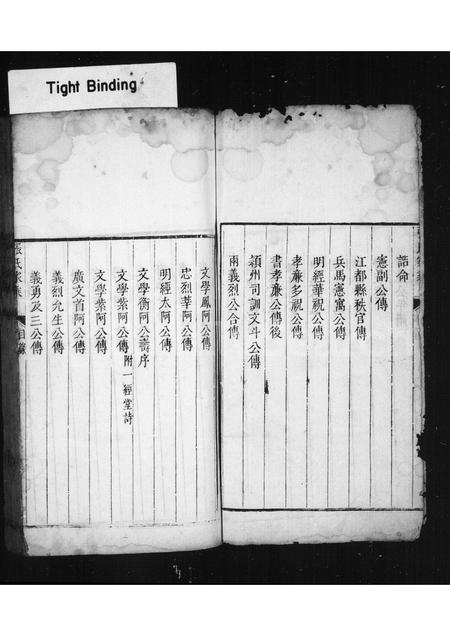 Tight Binding
誥命
憲副公傳
江都縣秩官傳
兵馬憲寓公傳
明經華視公傳
孝廉多視公傳
書孝廉公傳後
潁州司訓文斗公傳
兩義烈公合傳
文學鳳阿公傳
忠烈莘阿公傳
明經太阿公傳
文學衡阿公壽序
文學紫阿公傳 附一經堂詩
文學紫阿公傳
廣文首阿公傳
義烈先生公傳
義勇及三公傳
氏家乘
目錄